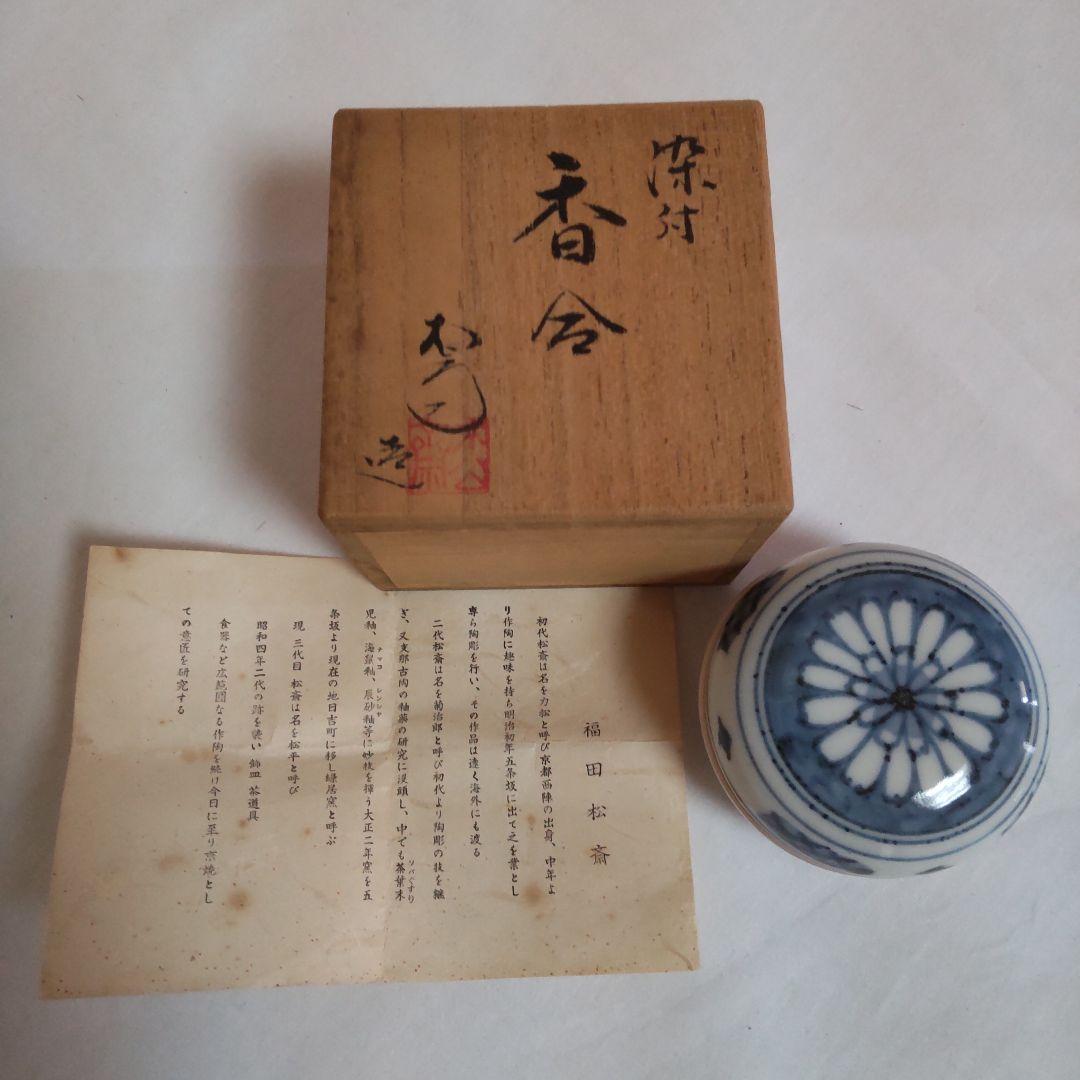 染付
香合
造
福田松斎
初代松斎は名を力松と呼び京都西陣の出身、中年よ
り作陶に趣味を持ち明治初年五条坂に出て之を業とし
専ら陶彫を行い、その作品は遠く海外にも渡る
二代松斎は名を菊治郎と呼び初代より陶彫の技を継
ぎ、又支那古陶の釉薬の研究に没頭し、中でも茶葉末
ソバぐすり
児釉、海鼠釉、辰砂釉等に妙技を揮う大正二年窯を五
ナマコ シンシヤ
条坂より現在の地日吉町に移し緑居窯と呼ぶ
現 三代目 松斎は名を松平と呼び
昭和四年二代の跡を襲い 飾皿 茶道具
食器など広範囲なる作陶を続け今日に至り京焼とし
ての意匠を研究する